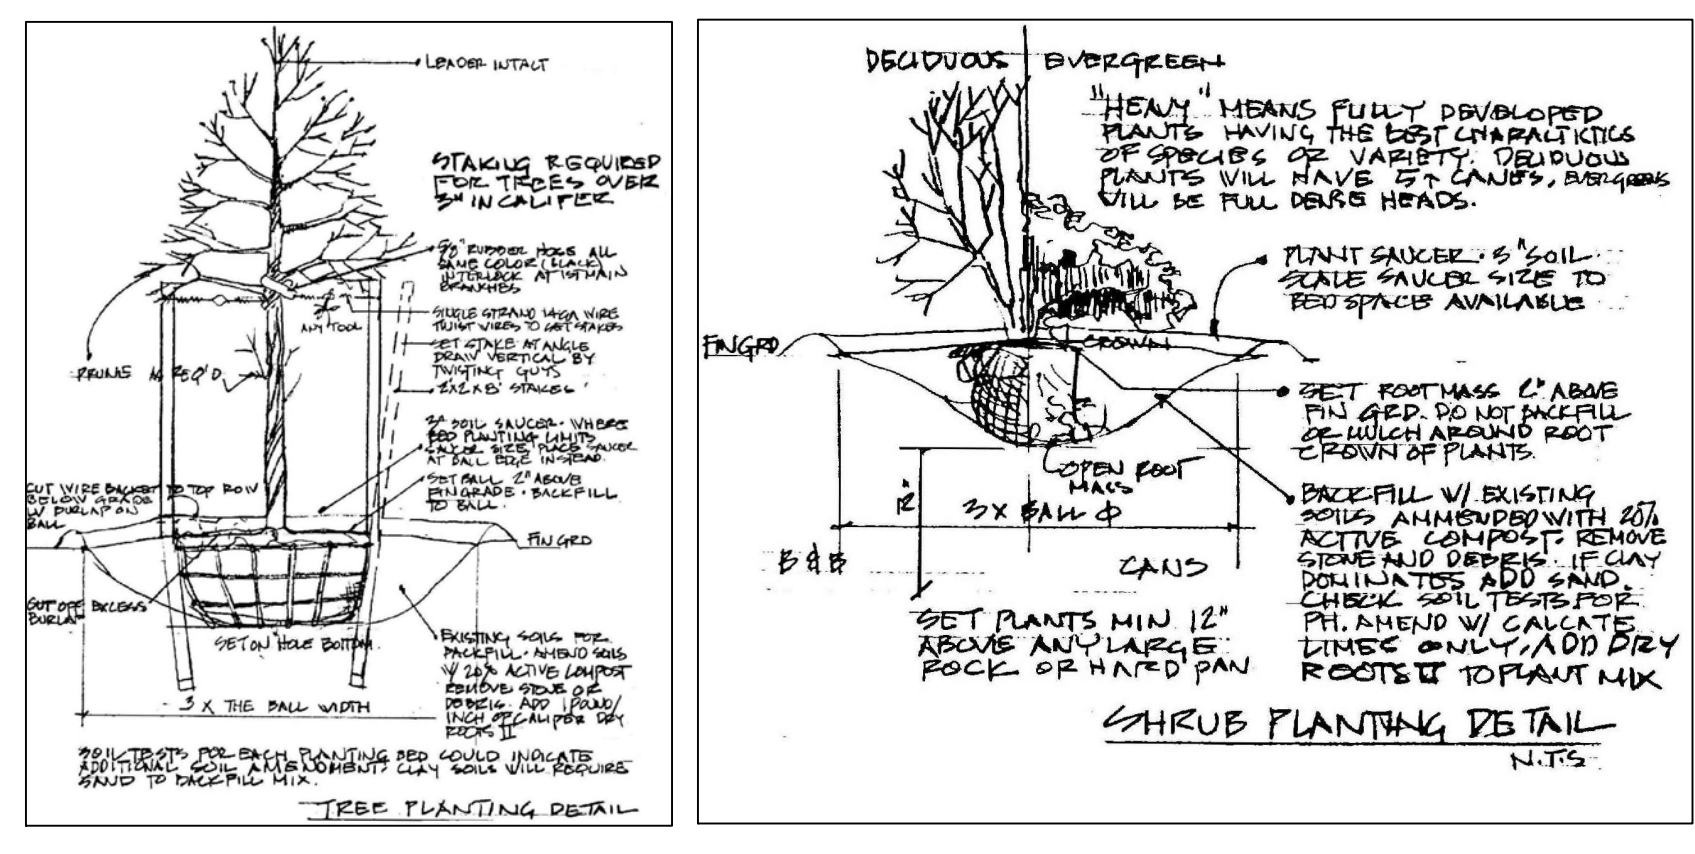 LEADER INTACT
STAKING REQUIRED
FOR TREES OVER
3" IN CALIPER
5/8" RUBBER HOSE ALL
SAME COLOR (BLACK)
INTERLOCK AT 1ST MAIN
BRANCHES
ANY TOOL
SINGLE STRAND 14GA WIRE
TWIST WIRES TO SET STAKES
SET STAKE AT ANGLE
DRAW VERTICAL BY
TWISTING GUYS
2X2X8' STAKES
PRUNE AS REQ'D
3" SOIL SAUCER. WHERE
BED PLANTING LIMITS
SAUCER SIZE, PLACE SAUCER
AT BALL EDGE INSTEAD.
SET BALL 2" ABOVE
FIN GRADE. BACKFILL
TO BALL.
CUT WIRE BASKET TO TOP ROW
BELOW GRADE
W/ BURLAP ON
BALL
FIN GRD
CUT OFF EXCESS
BURLAP
SET ON HOLE BOTTOM.
EXISTING SOILS FOR
BACKFILL. AMEND SOILS
W/ 20% ACTIVE COMPOST
REMOVE STONE OR
DEBRIS. ADD 1 POUND/
INCH OF CALIPER DRY
ROOTS II
3 X THE BALL WIDTH
SOIL TESTS FOR EACH PLANTING BED COULD INDICATE
ADDITIONAL SOIL AMENDMENT. CLAY SOILS WILL REQUIRE
SAND TO BACKFILL MIX.
TREE PLANTING DETAIL
DECIDUOUS EVERGREEN
"HEAVY" MEANS FULLY DEVELOPED
PLANTS HAVING THE BEST
OF SPECIES OR VARIETY. DECIDUOUS
PLANTS WILL HAVE 5↑ CANES, EVERGREENS
WILL BE FULL DENSE HEADS.
PLANT SAUCER. 3" SOIL
SCALE SAUCER SIZE TO
BED SPACE AVAILABLE
FIN GRD
CROWN
SET ROOT MASS 2" ABOVE
FIN GRD. DO NOT BACKFILL
OR MULCH AROUND ROOT
CROWN OF PLANTS.
OPEN ROOT
MASS
12"
3 X BALL Φ
B & B
CANS
BACKFILL W/ EXISTING
SOILS AMMENDED WITH 20%
ACTIVE COMPOST. REMOVE
STONE AND DEBRIS. IF CLAY
DOMINATES ADD SAND.
CHECK SOIL TESTS FOR
PH. AMEND W/ CALCATE
LIMES ONLY, ADD DRY
ROOTS II TO PLANT MIX
SET PLANTS MIN 12"
ABOVE ANY LARGE
ROCK OR HARD PAN
SHRUB PLANTING DETAIL
N.T.S